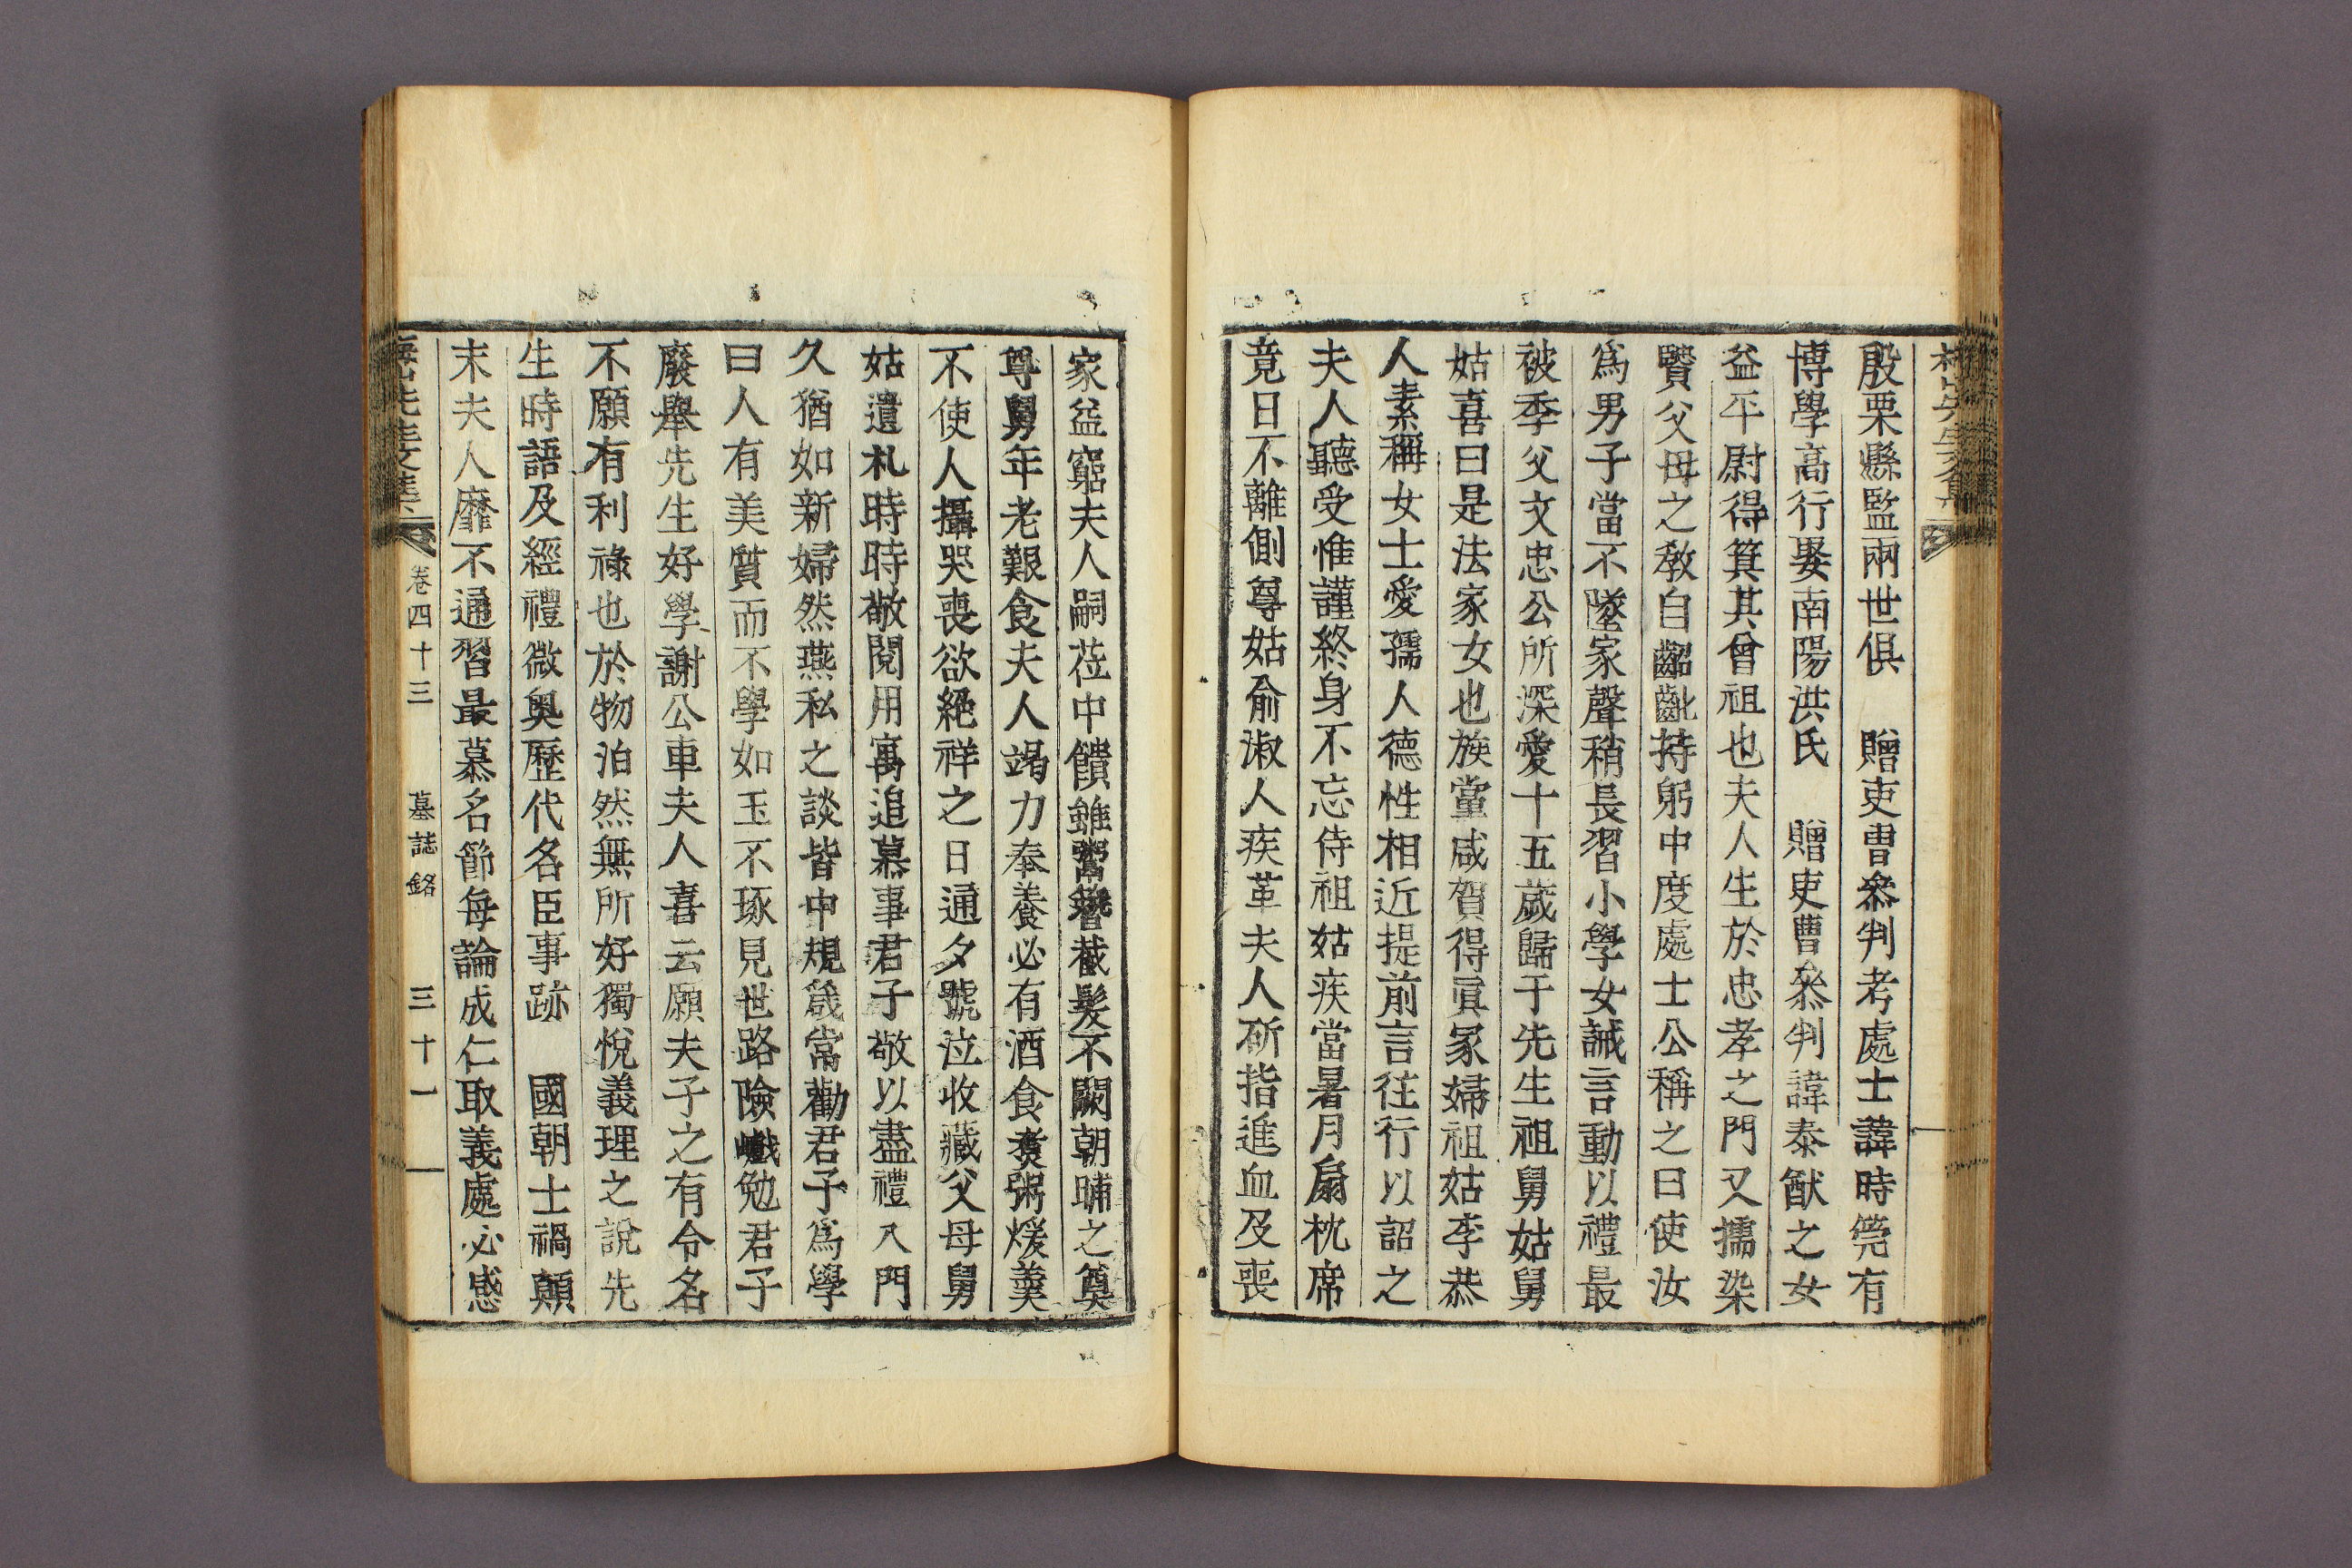 殷栗縣監兩世俱　贈吏曹叅判考處士諱時筦有
博學高行娶南陽洪氏　贈吏曹叅判諱泰猷之女
益平尉得箕其曾祖也夫人生於忠孝之門又擩染
賢父母之敎自齠齔持躬中度處士公稱之曰使汝
爲男子當不墜家聲稍長習小學女誡言動以禮最
被季父文忠公所深愛十五歲歸于先生祖舅姑舅
姑喜曰是法家女也族黨咸賀得眞冢婦祖姑李恭
人素稱女士愛孺人德性相近提前言徃行以詔之
夫人聽受惟謹終身不忘侍祖姑疾當暑月扇枕席
竟日不離側尊姑兪淑人疾革夫人斫指進血及喪
家益窮夫人嗣莅中饋雖鬻簪截髮不闕朝晡之奠
尊舅年老艱食夫人竭力奉養必有酒食煑粥煖羹
不使人攝哭喪欲絶祥之日通夕號泣收藏父母舅
姑遺札時時敬閱用寓追慕事君子敬以盡禮入門
久猶如新婦然燕私之談皆中規箴常勸君子爲學
曰人有美質而不學如玉不琢見世路險巇勉君子
廢擧先生好學謝公車夫人喜云願夫子之有令名
不願有利祿也於物泊然無所好獨悅義理之說先
生時語及經禮微奧歷代名臣事跡　國朝士禍顛
末夫人靡不通習最慕名節每論成仁取義處必感
卷四十三　墓誌銘　三十一